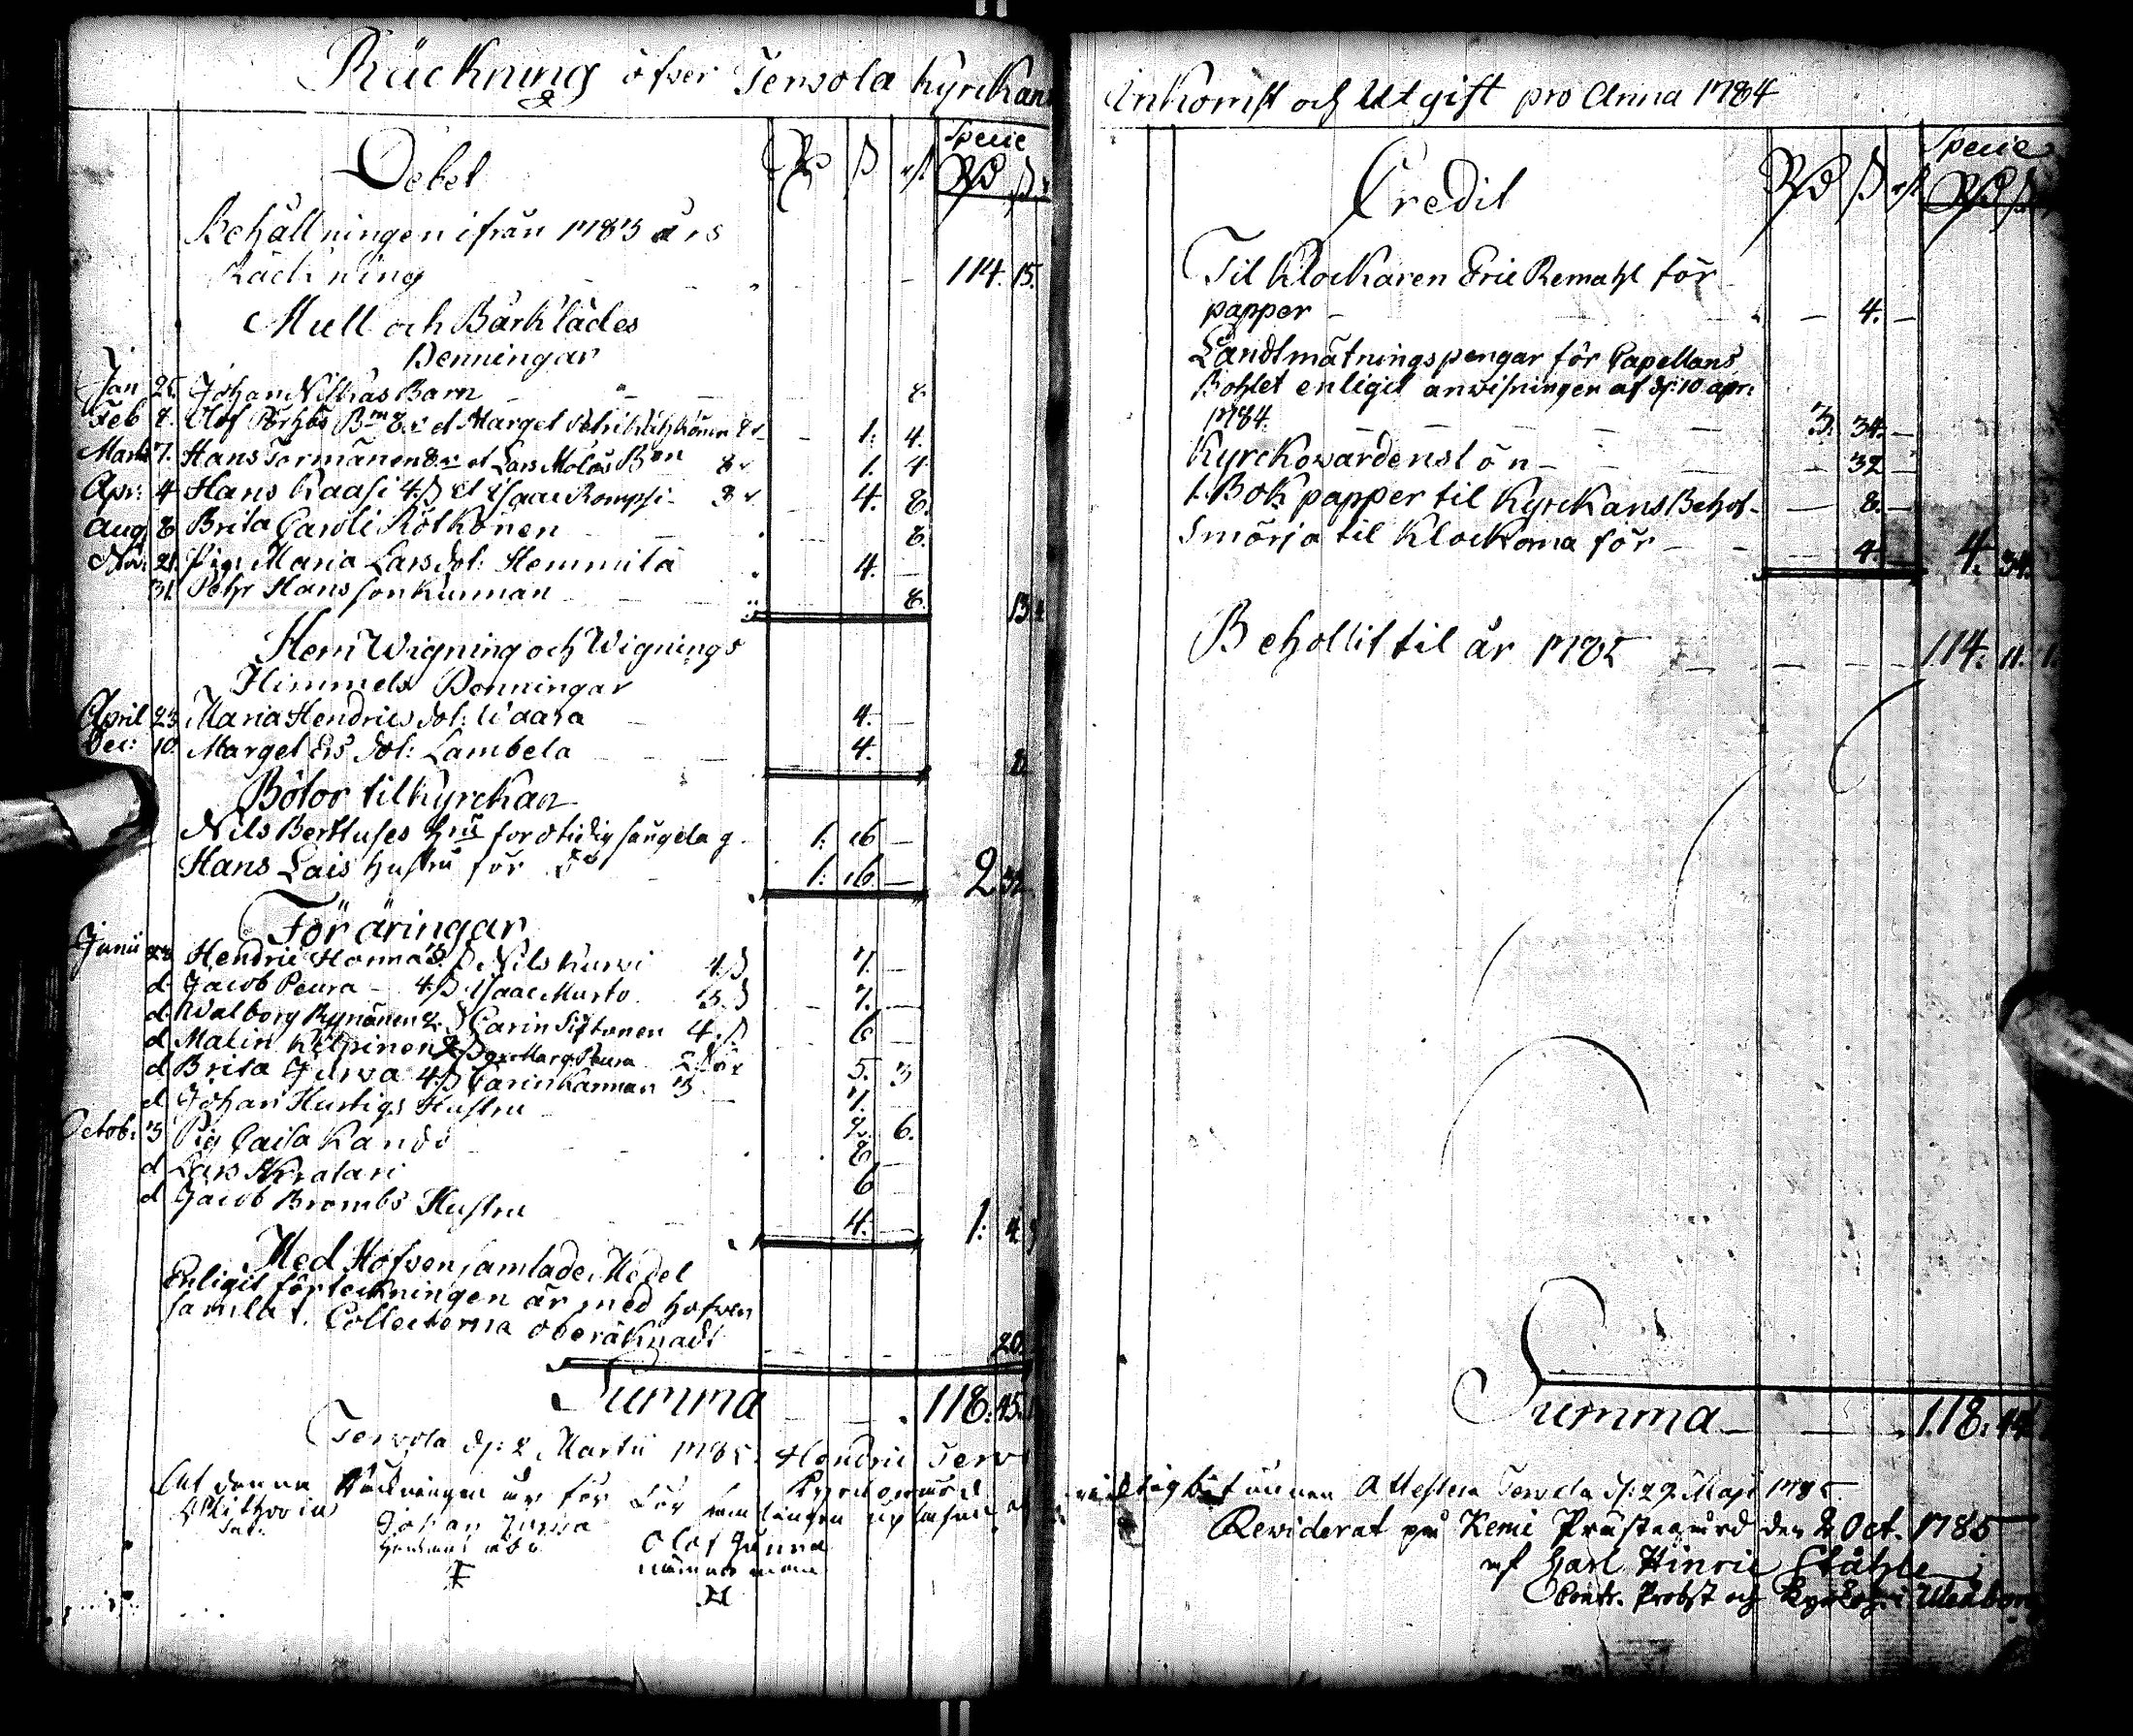 Räckning öfver Tervola Kyrckans
Debet
Specie
Behållningen ifrån 1783 års
Räckning - - - 114. 15.
Mull och Bårklädes
Penningar
Jan 25. Johan Nilkas Barn - 8.
Feb 8. Olof Pörhös Bn 8 r et Marget 8 r - 1: 4.
Marti 7. Hans Tormänen 8 r et Lars Molas Bn 8 r 1. 4
Apr: 4 Hans Kaasi 4 ß et Isaac Rompsi - 8 r. 4. 8.
Aug 8 Brita Caroli Rötkönen - - 8.
Nov: 21. Pig. Maria Lars dot: Hemmilä 4. -
31. Pehr Hansson Kunnan - - 8. 13. 4
Hem Wigning och Wignings
Himmels Penningar
April 23 Maria Hendrics dot: Waara - 4. -
Dec: 10. Marget Ers dot: Lambela - - 4. 8
Böter til Kyrckan
Nils Berttuses hru for otidig sängela g. 1: 16 -
Hans Lais hustru för do - 1: 16. - 2 32.
Föräringar
Junii 24 Hendric Hannas 3 ß Nils Kurvi 4 ß 7. -
d Jacob Peura - 4 ß Isaac Mursto 3 ß - 7. -
d Walborg Rynänen 2 ß Carin Siftonen 4 ß 6 -
d Malin Kilpinen 2 ß Marg. Peura 5. 3
d Brita Jurva 4 ß Carin Kannan 3 - 7. -
d Johan Hurtigs Hustru - 2. 6.
Octob: 3 Pig Caisa Kando - - 8 -
d Lars Akratari 6 -
d Jacob Brombs Hustru - - 4. - 1: 4
Med Hofven samlade Medel
Enligit förteckningen är med hofven
samlat. Collecterna oberäknadt - - - 20.
Summa - - 118: 45.
Tervola d: 2 Martii 1785. Hendric Terv
Kyrckovärd
At denna Räckningen är för Församlingen upläsen och
Johan Jurva
Olof Junna
nämndeman
Inkomst och Utgift pro Anno 1784
Credit
Specie
Til Klockaren Eric Remahl för
papper - - - 4. -
Landtmätningspengar för Capellans
Bohlet enligit anvisningen af d: 10 apr:
1784. - - - - 3. 34. -
Kyrckovärdens lön - - - 32 -
1. Bok papper til Kyrckans Behof - - 8. -
Smörja til Klockorna för - - - 4. - 4. 34.
Behollit til år 1785 - - - - 114. 11.
Summa - - - 118. 45
riktighet ännen Attestera Tervola d: 29 Maji 1785.
Reviderat på Kemi Prästegård den 2 Oct. 1785
af Carl Hinric Ståhle
Contr. Probst och Kyrkoh: i Uleåborg